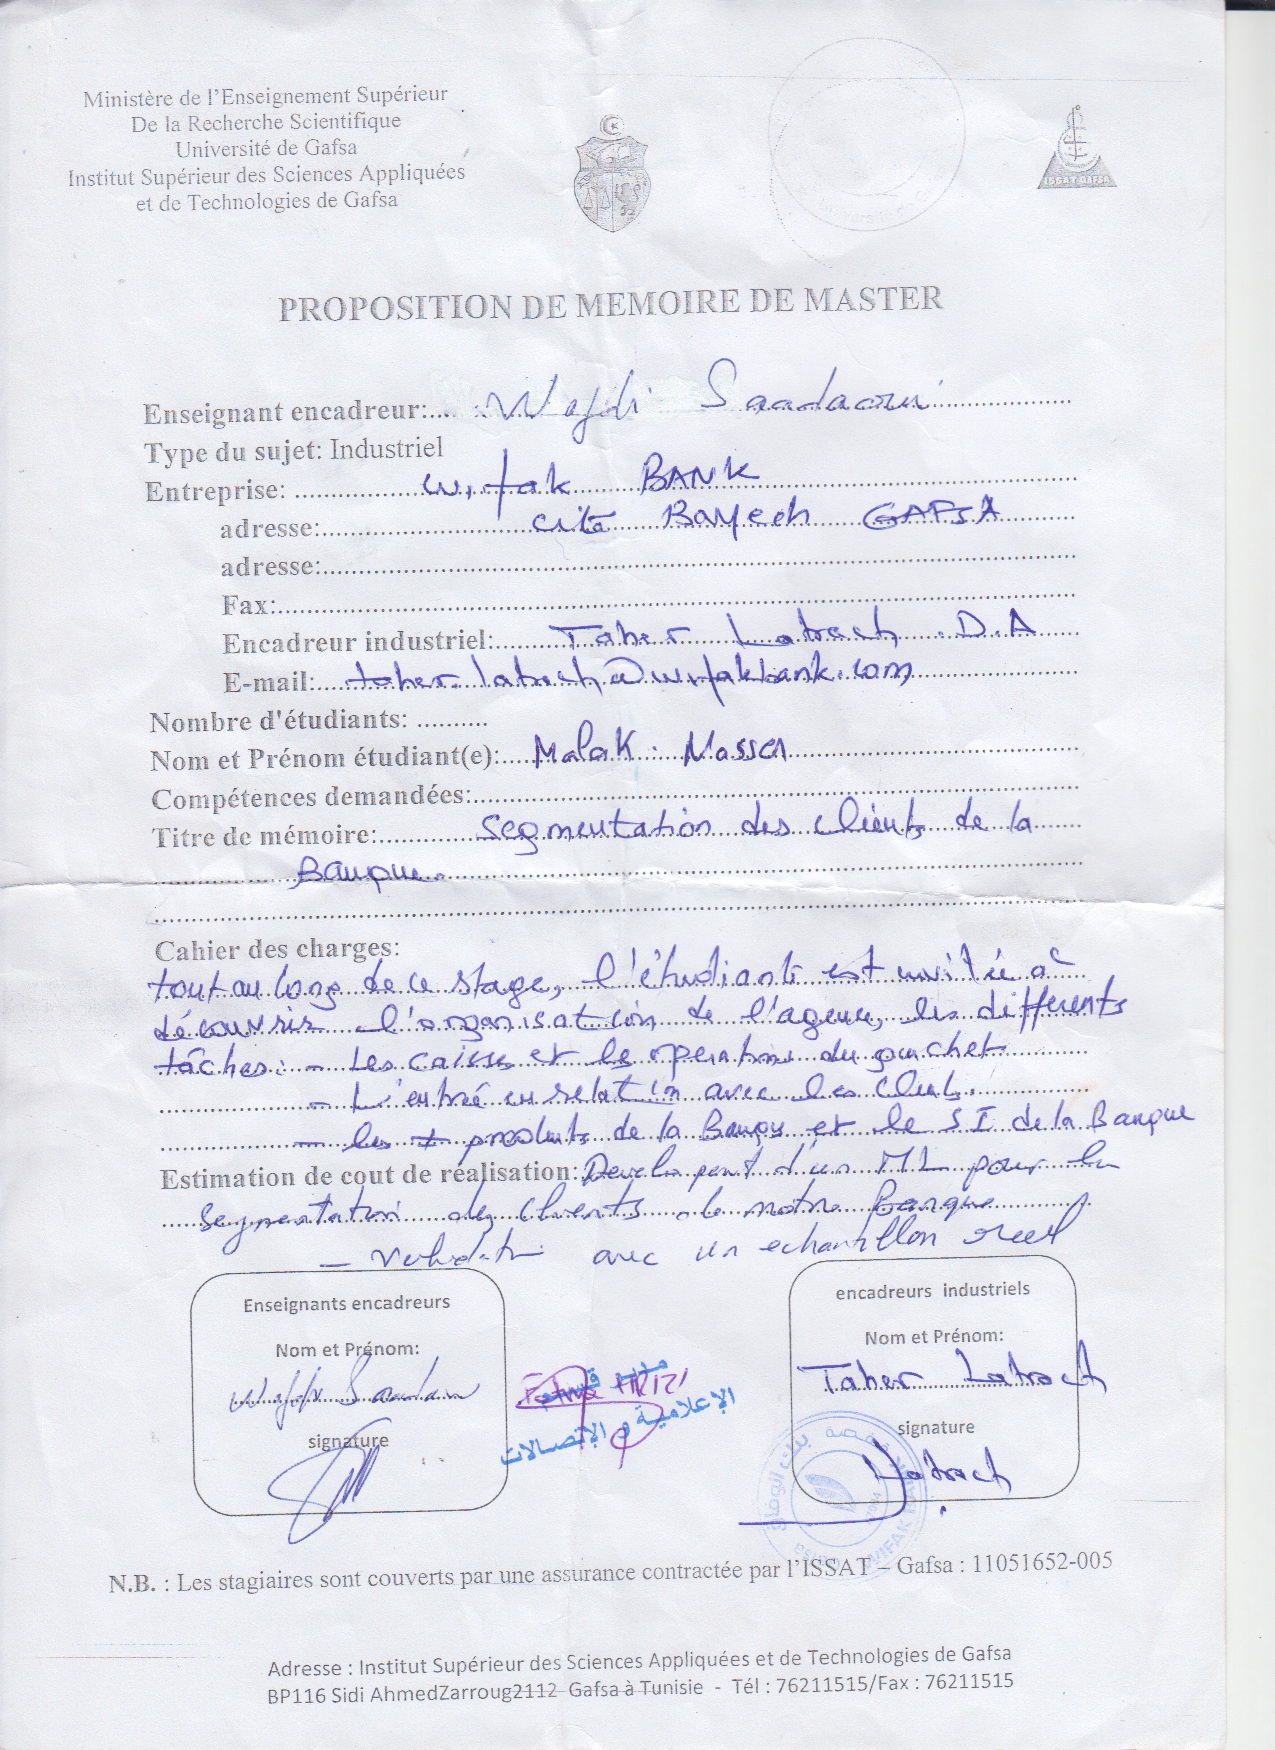 Ministère de l'Enseignement Supérieur
De la Recherche Scientifique
Université de Gafsa
Institut Supérieur des Sciences Appliquées
et de Technologies de Gafsa
ISSAT GAFSA
PROPOSITION DE MEMOIRE DE MASTER
Enseignant encadreur:.... Wajdi Saadaoui
Type du sujet: Industriel
Entreprise: Wifak BANK
adresse: Cité Bayech GAFSA
adresse:
Fax:
Encadreur industriel: Taher Latrach D.A
E-mail: taher.latrach@wifakbank.com
Nombre d'étudiants: ..........
Nom et Prénom étudiant(e): Malak Nasser
Compétences demandées:
Titre de mémoire: Segmentation des clients de la
Banque.
Cahier des charges:
tout au long de ce stage, l'étudiante est invitée à
découvrir l'organisation de l'agence, les différents
tâches: - Les caisse et les operations du guichet
- L'entré en relation avec les clients.
- les ≠ produits de la Banque et le S I de la Banque
Estimation de cout de réalisation: Develo pent d'un ML pour la
segmentation des clients de notre banque
- Validation avec un echantillon réel
Enseignants encadreurs
Nom et Prénom:
Wajdi Saadaoui
signature
encadreurs industriels
Nom et Prénom:
Taher Latrach
signature
Latrach
مدير قسم
الإعلامية و الإتصالات
N.B. : Les stagiaires sont couverts par une assurance contractée par l'ISSAT – Gafsa : 11051652-005
Adresse : Institut Supérieur des Sciences Appliquées et de Technologies de Gafsa
BP116 Sidi AhmedZarroug2112 Gafsa à Tunisie - Tél : 76211515/Fax : 76211515